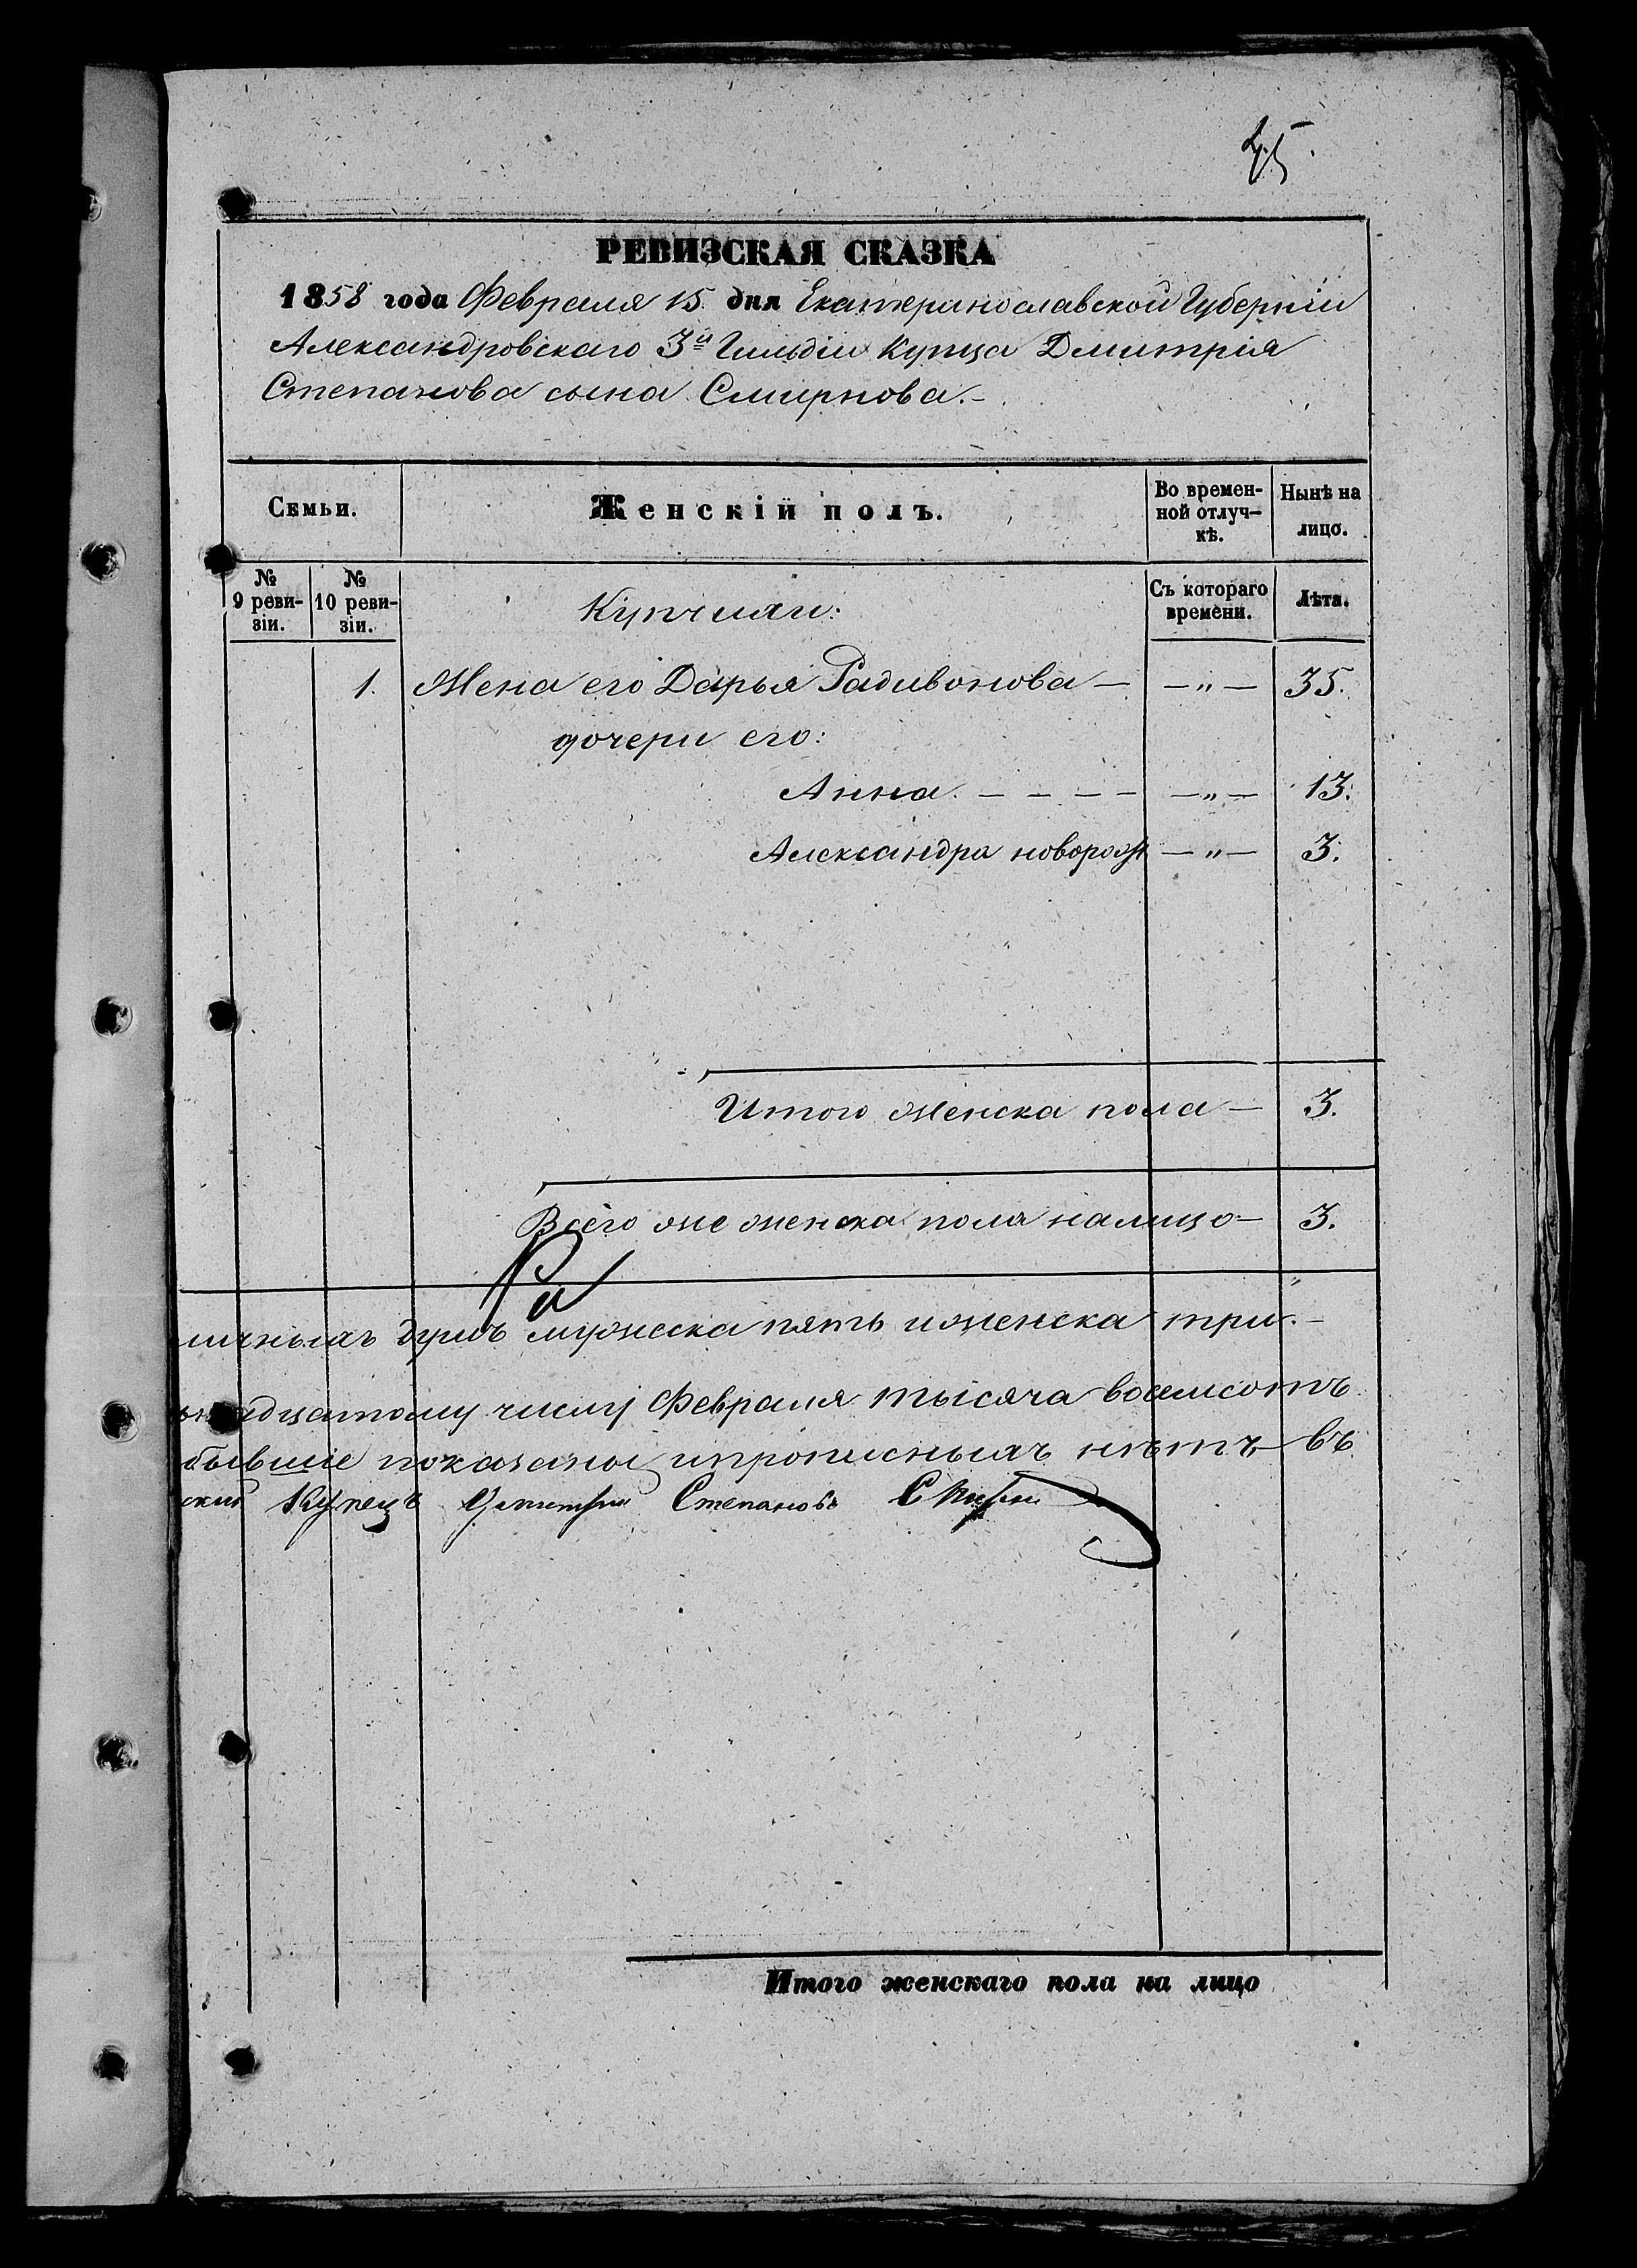 45.
РЕВИЗСКАЯ СКАЗКА
1858 года Февраля 15 дня Екатеринославской Губерніи
Александровскаго 3й Гильдіи Купца Дмитрія
Степанова сына Смирнова.-
Семьи.
Женскій полъ.
Во времен-
ной отлуч-
кѣ.
Нынѣ на
лицо.
№
9 реви-
зіи.
№
10 реви-
зіи.
Съ котораго
времени.
Лѣта.
Купчихи:
1. Жена его Дарья Радивонова — —„— 35.
дочери его:
Анна. — — — — —„— 13.
Александра новорож —„— 3.
Итого женска пола — 3.
Всего же женска пола налицо — 3.
личныхъ душъ мужеска пять и женска три.-
надцатому числу Февраля тысяча восемсотъ
бывшіе показаны, и прописныхъ нѣтъ въ
скій Купецъ Дмитрій Степановъ
Итого женскаго пола на лицо